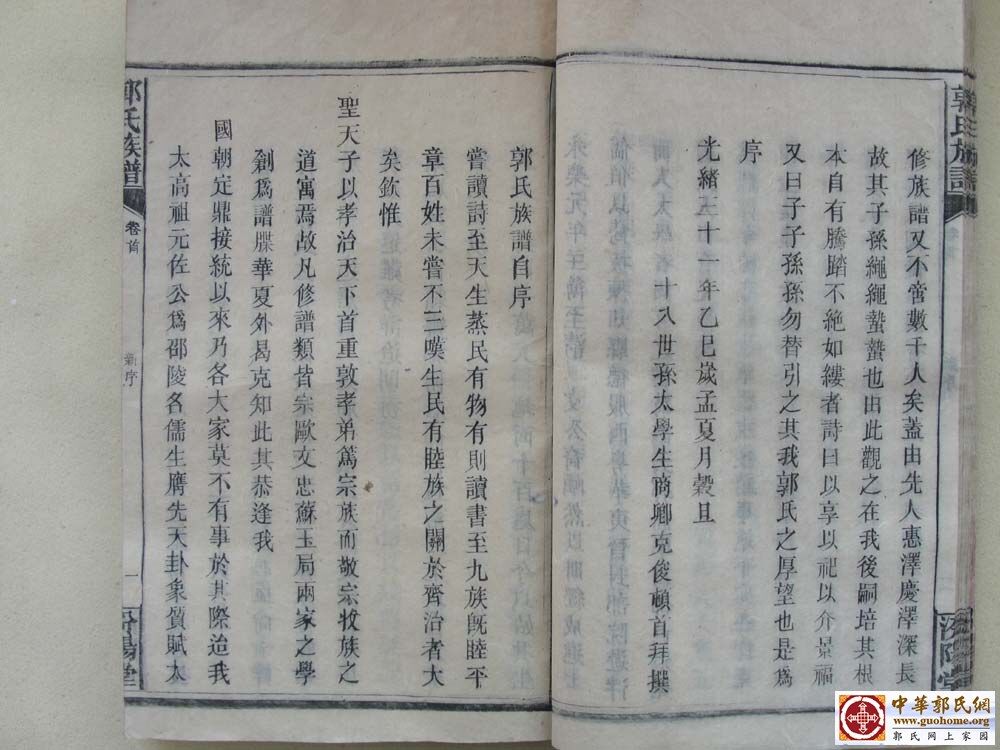 郭氏族譜
修族譜又不啻數千人矣蓋由先人惠澤慶澤深長
故其子孫繩繩蟄蟄也由此觀之在我後嗣培其根
本自有騰踏不絶如縷者詩曰以享以祀以介景福
又曰子子孫孫勿替引之其我郭氏之厚望也是爲
序
光緒三十一年乙巳歲孟夏月穀旦
十八世孫太學生商卿克俊頓首拜撰
郭氏族譜自序
嘗讀詩至天生蒸民有物有則讀書至九族旣睦平
章百姓未嘗不三嘆生民有睦族之關於齊治者大
矣欽惟
聖天子以孝治天下首重敦孝弟篤宗族而敬宗牧族之
道寓焉故凡修譜類皆宗歐文忠蘇玉局兩家之學
創爲譜牒華夏外曷克知此其恭逢我
國朝定鼎接統以來乃各大家莫不有事於其際迨我
太高祖元佐公爲邵陵名儒生膺先天卦象質賦太
郭氏族譜
卷首
新序
一
汾陽堂
汾陽堂
中華郭氏網
www.guohome.org
郭氏网上家園